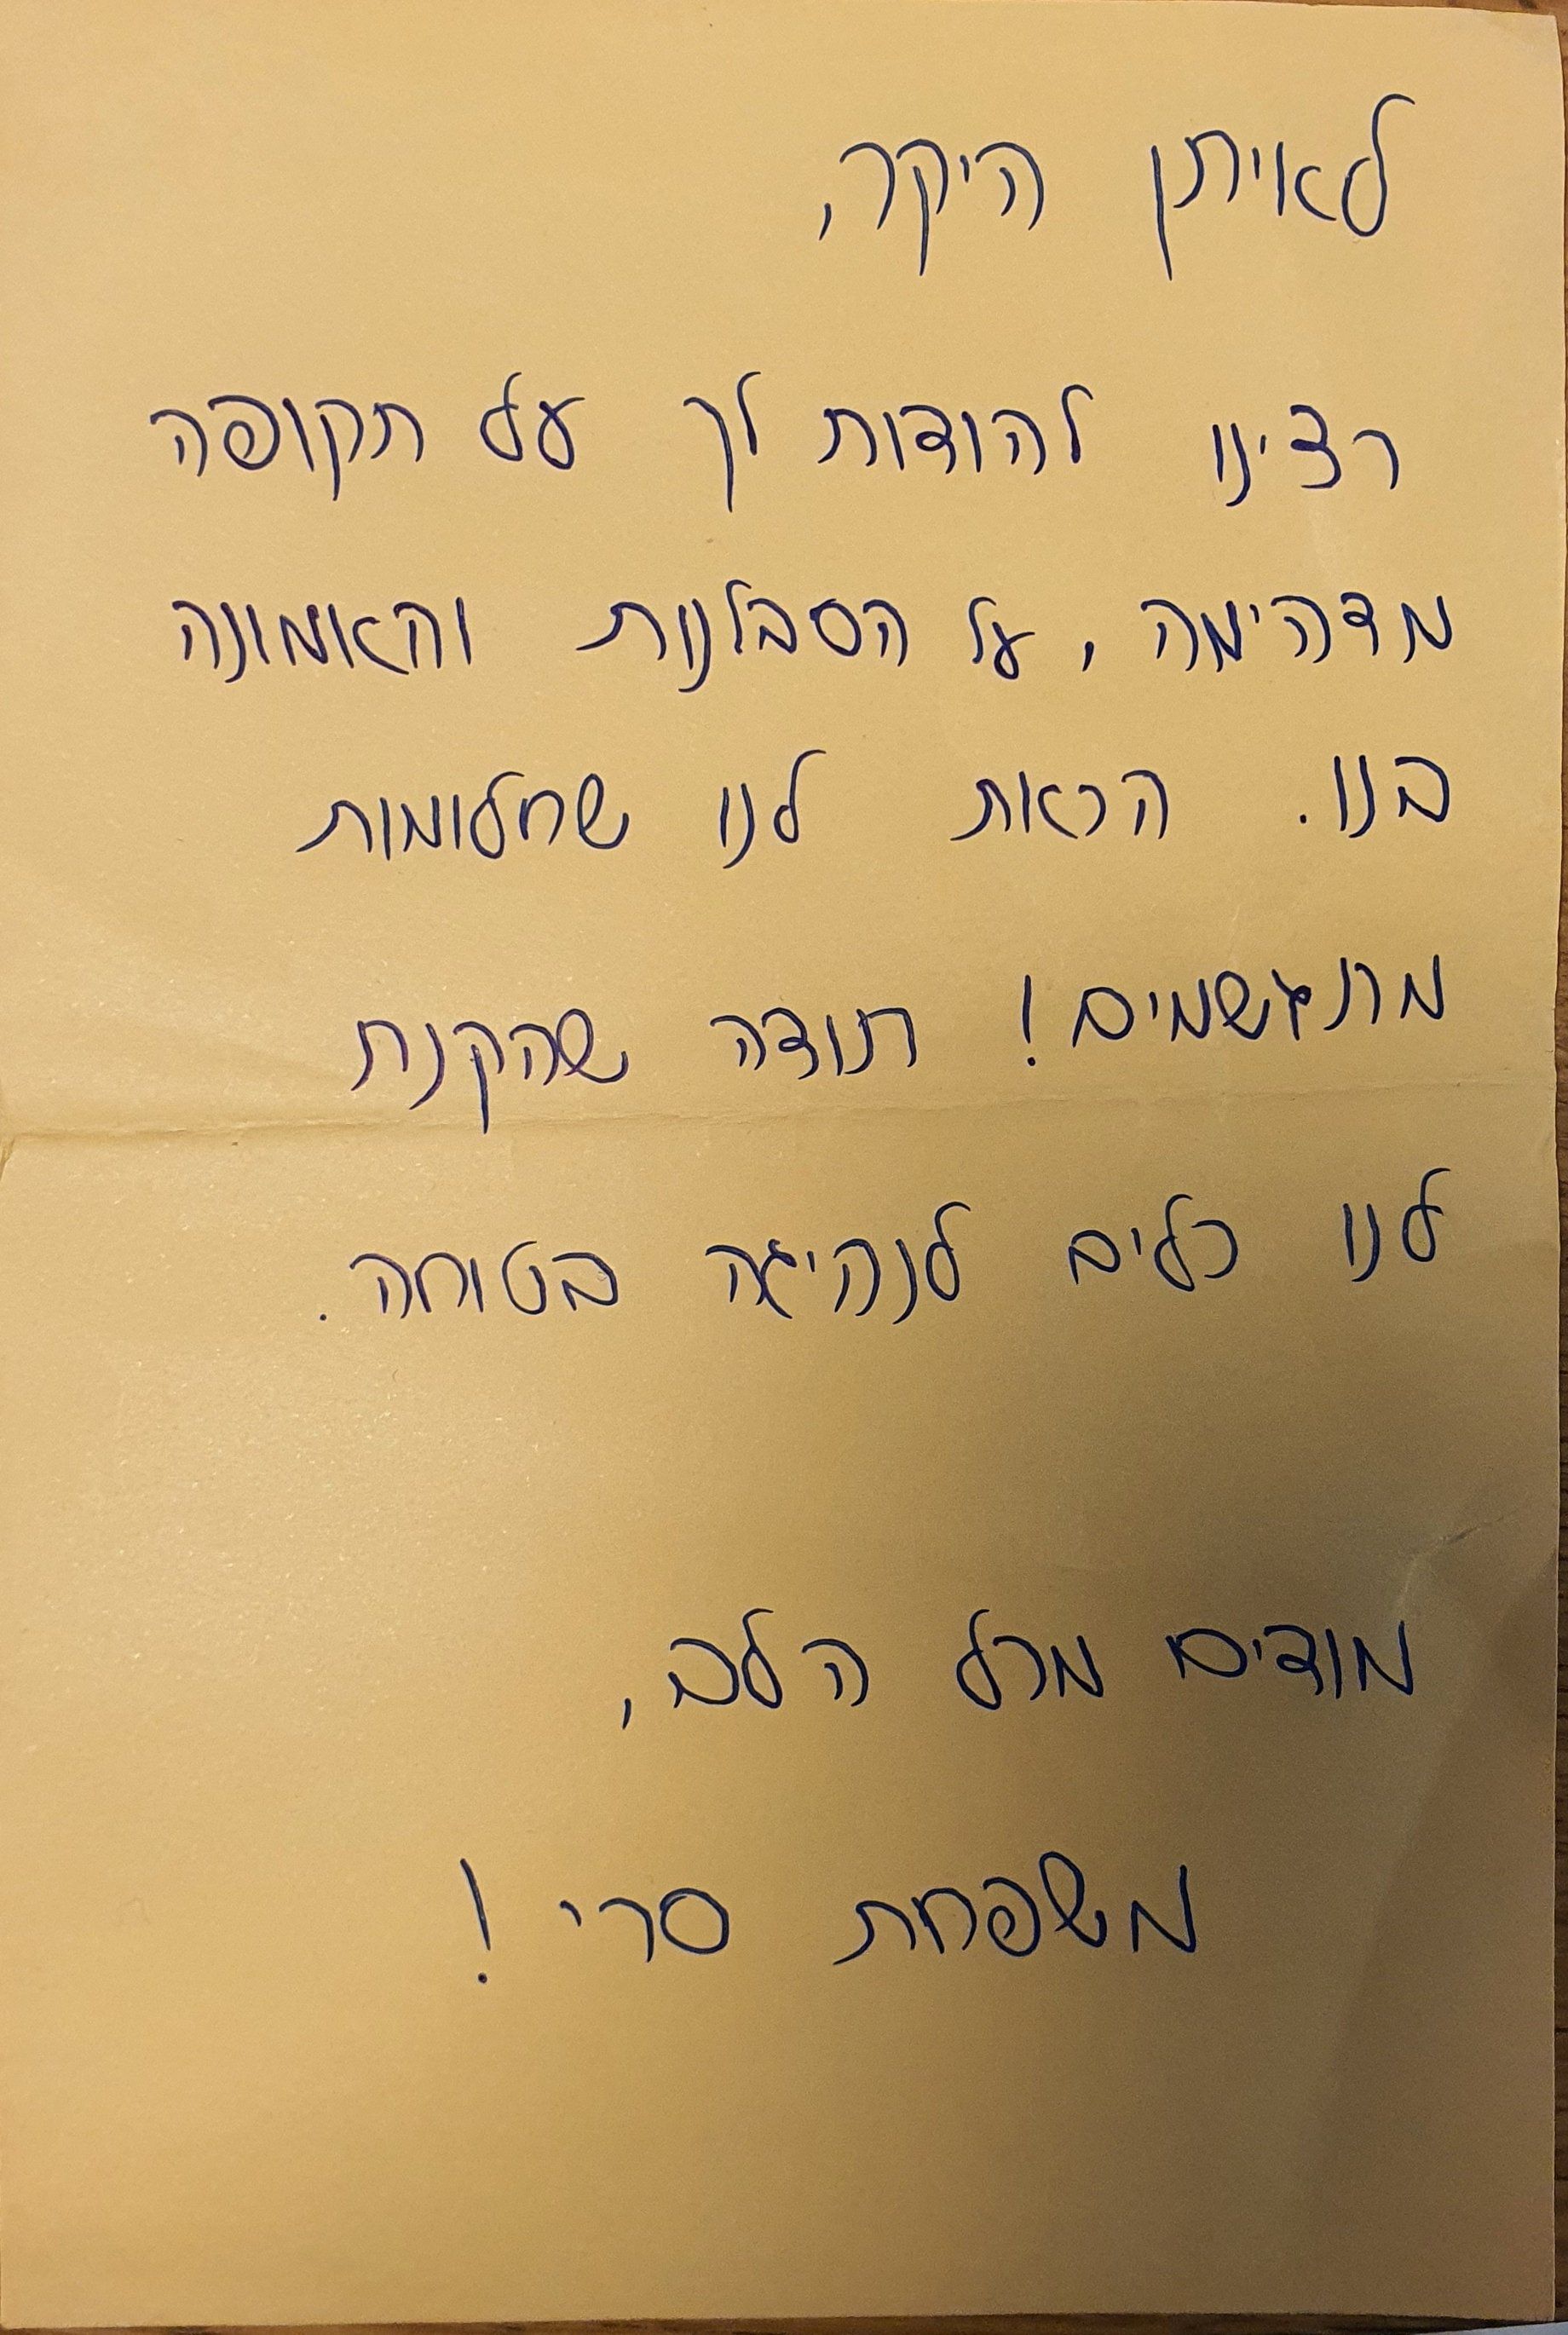 לאיתן היקר,
רצינו להודות לך על תקופה
מדהימה, על הסבלנות והאמונה
בנו. הראת לנו שחלומות
מתגשמים! תודה שהקנת
לנו כלים לנהיגה בטוחה.
מודים מכל הלב,
משפחת סרי!